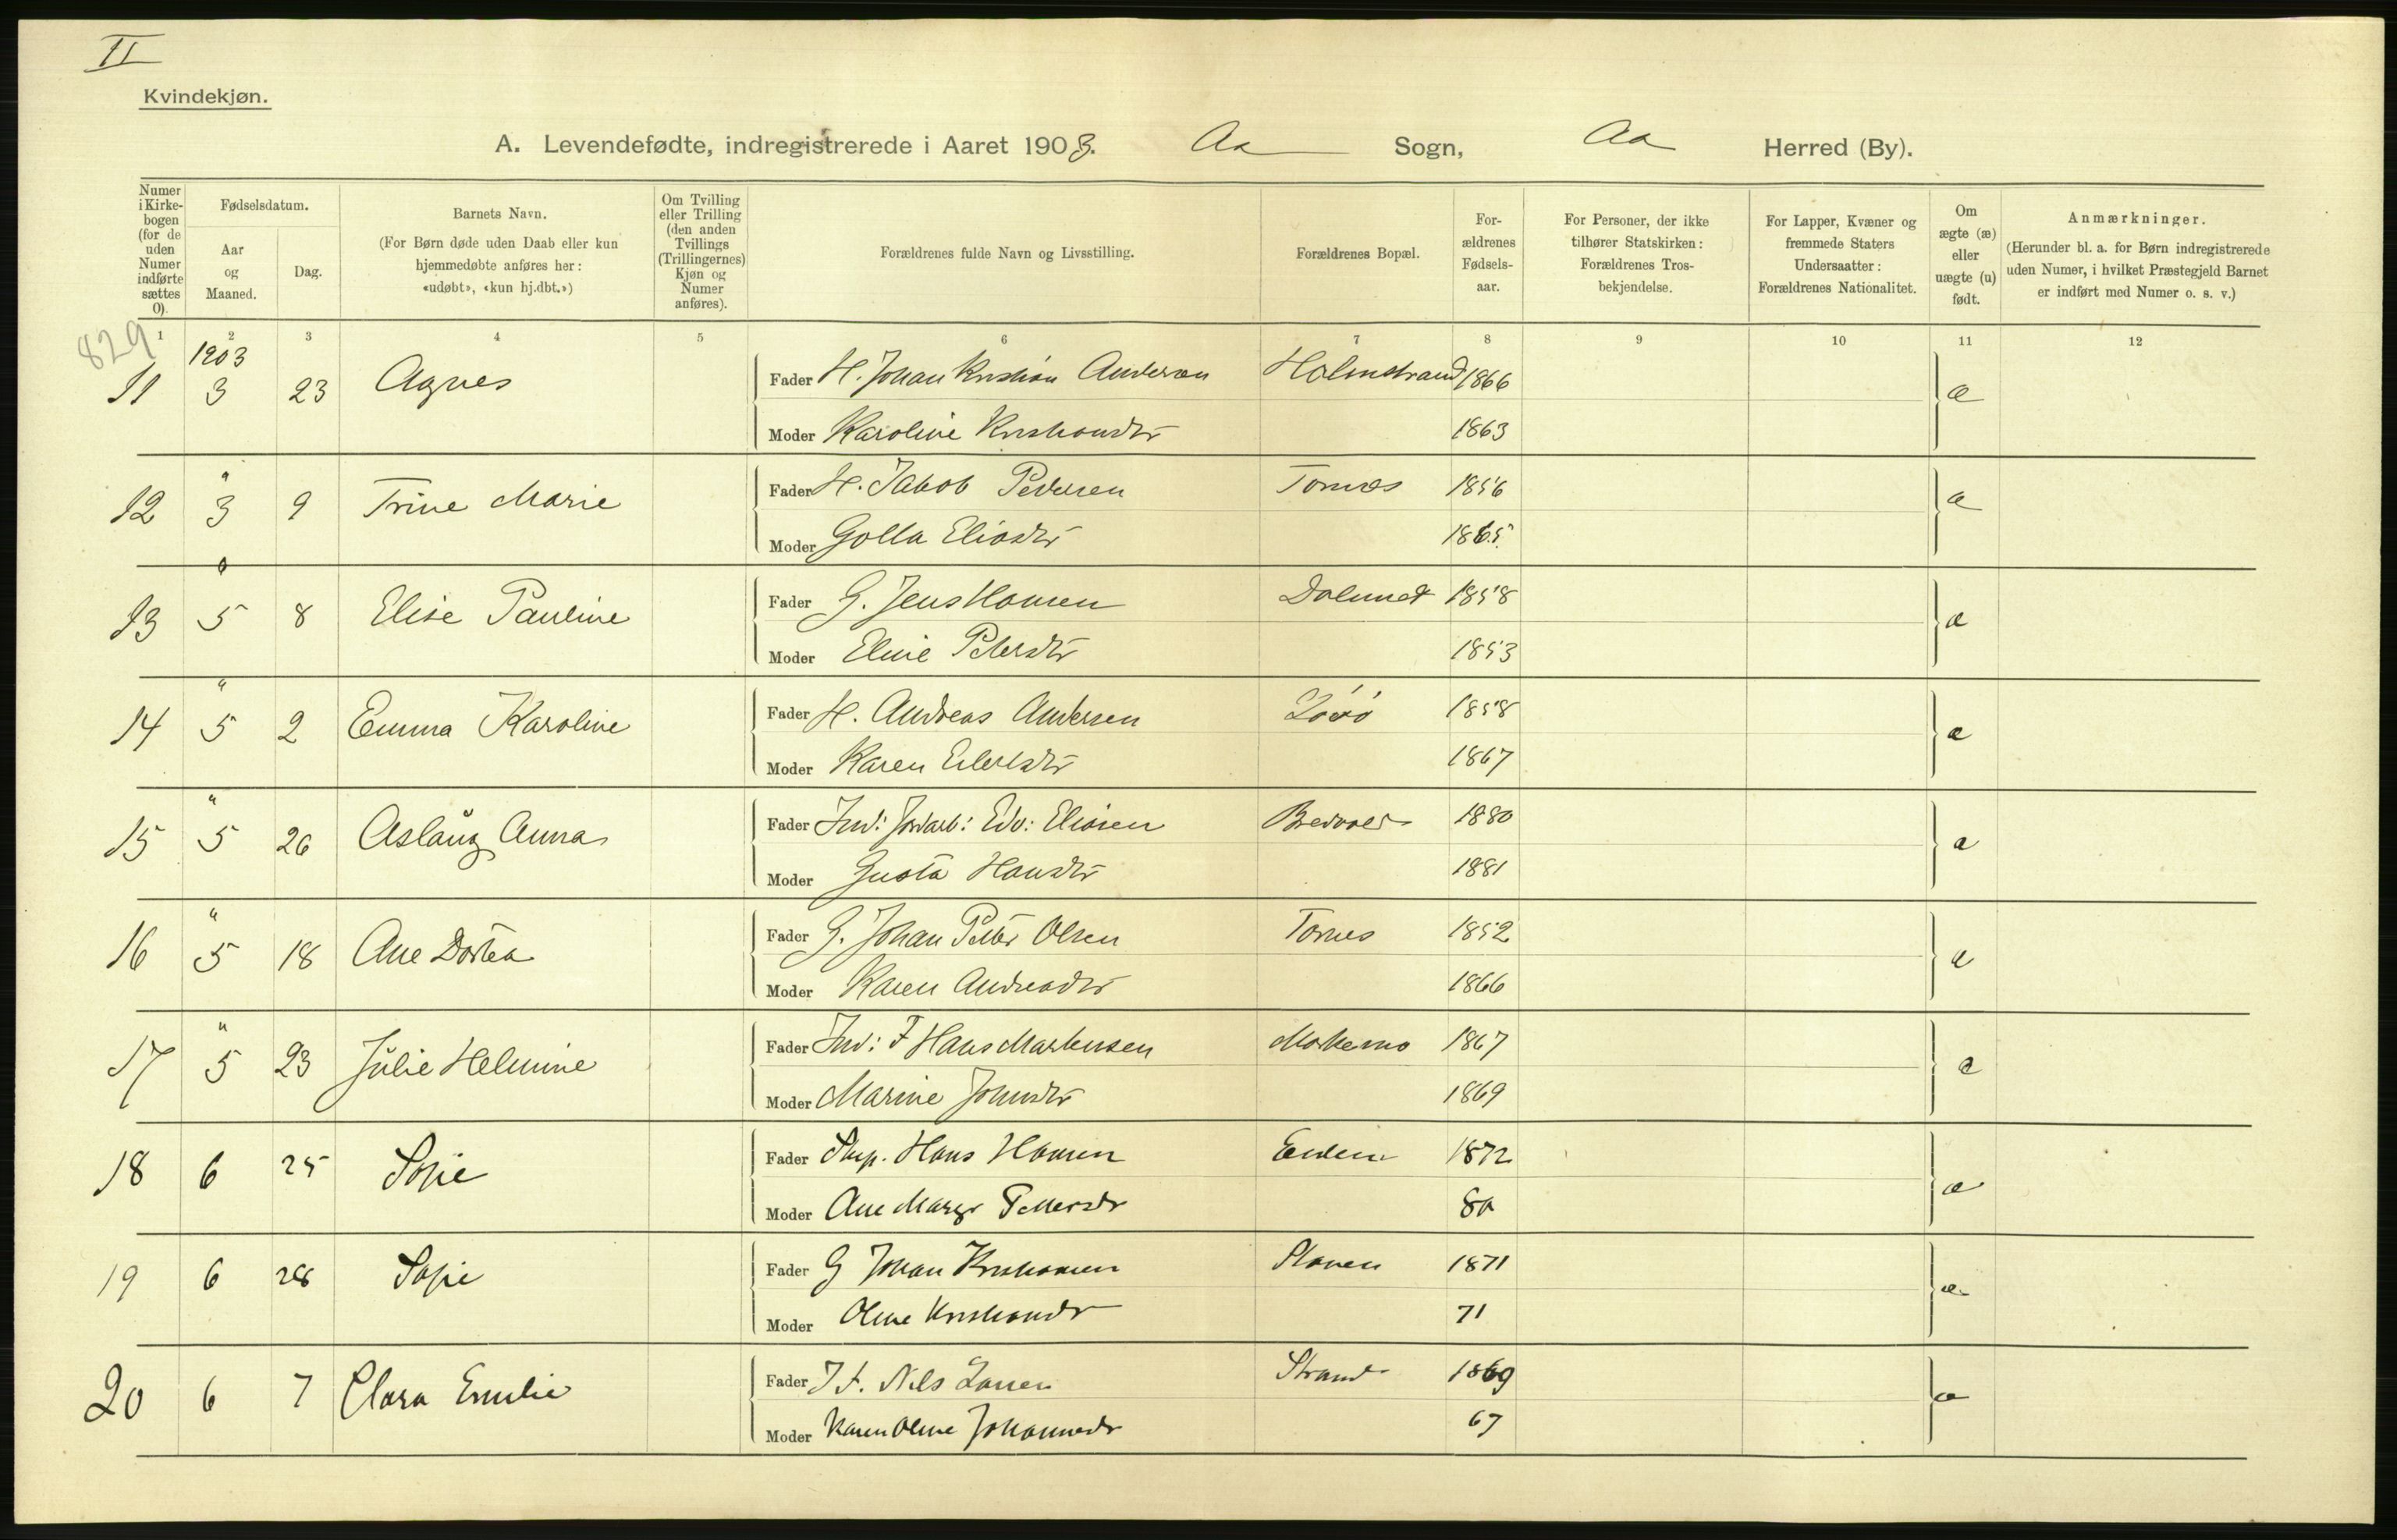 II
Kvindekjøn.
A. Levendefødte, indregistrerede i Aaret 1903. Aa Sogn, Aa Herred (By).
Numer i Kirkebogen (for de uden Numer indførte sættes 0).
Fødselsdatum.
Aar og Maaned.
Dag.
Barnets Navn.
(For Børn døde uden Daab eller kun hjemmedøbte anføres her: «udøbt», «kun hj.dbt.»)
Om Tvilling eller Trilling (den anden Tvillings (Trillingernes) Kjøn og Numer anføres).
Forældrenes fulde Navn og Livsstilling.
Forældrenes Bopæl.
Forældrenes Fødselsaar.
For Personer, der ikke tilhører Statskirken: Forældrenes Trosbekjendelse.
For Lapper, Kvæner og fremmede Staters Undersaatter: Forældrenes Nationalitet.
Om ægte (æ) eller uægte (u) født.
Anmærkninger.
(Herunder bl. a. for Børn indregistrerede uden Numer, i hvilket Præstegjeld Barnet er indført med Numer o. s. v.)
1 2 3 4 5 6 7 8 9 10 11 12
829
1903
11 3 23 Agnes Fader H. Johan Kristian Andersen Holmstrand 1866 æ
Moder Karoline Kristiansdtr 1863
12 " 3 9 Trine Marie Fader H. Jakob Pedersen Tornes 1856 æ
Moder Golla Eliasdtr 1865
13 " 5 8 Elise Pauline Fader G. Jens Hansen 1858 æ
Moder Eline Petersdtr 1853
14 " 5 2 Emma Karoline Fader H. Andreas Andersen 1858 æ
Moder Karen 1867
15 " 5 26 Aslaug Anna Fader Ind: Jordarb: Edv: Eliasen 1880 æ
Moder Gusta Hansdtr 1881
16 " 5 18 Ane Dortea Fader G. Johan Petter Olsen Tornes 1852 æ
Moder Karen Andreasdtr 1866
17 " 5 23 Julie Helmine Fader Ind: F Hans Martensen 1867 æ
Moder Marine Johnsdtr 1869
18 6 25 Sofie Fader Hans Hansen 1872 æ
Moder Ane Margr Pettersdr 80
19 6 28 Sofie Fader G Johan Kristiansen 1871 æ
Moder Oline Kristiansdr 71
20 6 7 Clara Emilie Fader I F. Nils Larsen Strand 1869 æ
Moder Karen Oline Johannesdr 67